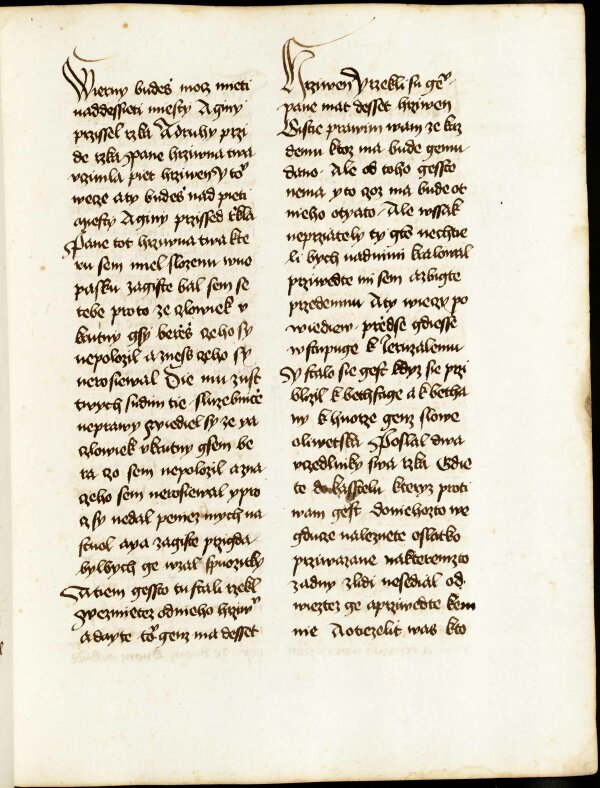 Wierny budeš mocz mieti
naddessieti miesty A giny
przissel rzka A druhy przi
de rzka Pane hrziwna twa
vzinila piet hrziwen y to͛
wece aty budeš nad pieti
miesty A giny przissed
Pane tot hrziwna twa kte
ru sem miel slozenu wuo
pasku zagiste bal sem se
tebe pro to ze czlowiek v
krutny gsy bereš czeho sy
nepolozil a zneš czeho sy
nerosiewal Die mu zust
twych sudim tie sluzebnicze
neprawy zwiediel sy ze ya
czlowiek vkrutny gsem be
ra czo sem nepolozil a zna
czeho sem nerosiewal y pro
cz sy nedal peniez mych na
stuol a ya zagiste przigda
bylbych ge wzal
Satiem gessto tu stali rzekl
Wezmietez odnieho hrziw͛
a dayte to͛ genz ma desset
Hrziwen Y rzekli su ge͛
pane mat desset hrziwen
Gistie prawim wam ze kaz
demu ktoz ma bude gemu
dano Ale od toho gessto
nema y to czoz ma bude ot
nieho otyato Ale wssak
neprziately ty gto nechtie
li bych nadnimi kralowal
prziwedte mi sem a zbigte
przedemnu A ty wieczy po
wiediew prědse gdiesse
wstupuge k Ieruzalemu
Y stalo sie gest kdyz sie pri
blizil k bethfage a k betha
ny k huorze genz slowe
oliwetska Poslal dwa
vczedlniky swa rzka Gdie
te do kasstelu kteryz proti
wam gest doniehozto we
gducze naleznete oslatko
prziwazane nakteremzto
zadny zlidi nesedial od
wiezte ge a prziwedte kem
nie A otiezelit was kto